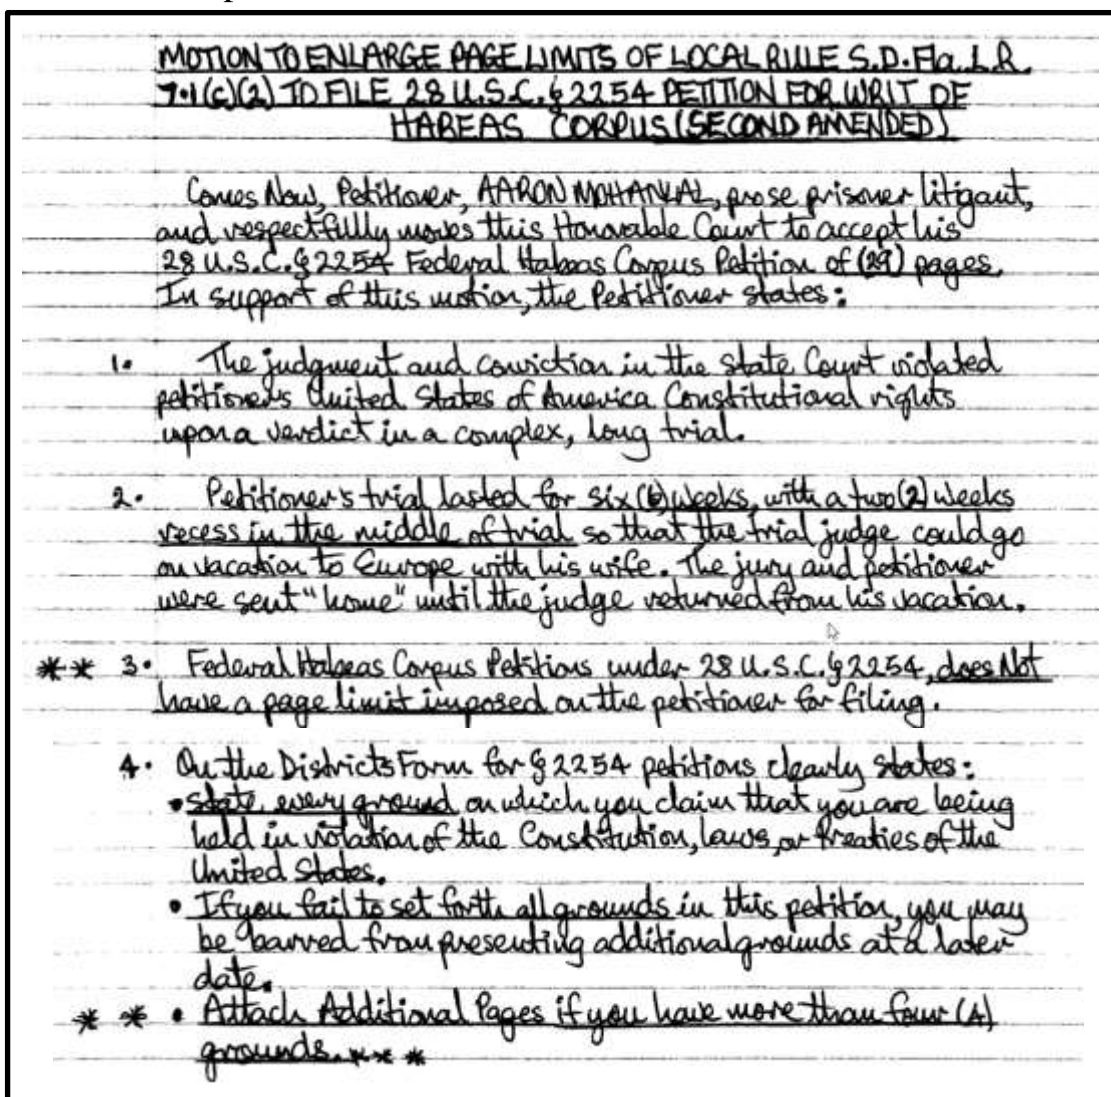 MOTION TO ENLARGE PAGE LIMITS OF LOCAL RULE S.D. Fla. L.R.
7.1(c)(2) TO FILE 28 U.S.C. § 2254 PETITION FOR WRIT OF
HABEAS CORPUS (SECOND AMENDED)
Comes Now, Petitioner, AARON MOHANLAL, prose prisoner litigant,
and respectfully moves this Honorable Court to accept his
28 U.S.C. § 2254 Federal Habeas Corpus Petition of (29) pages.
In support of this motion, the Petitioner states:
1. The judgment and conviction in the State Court violated
petitioner's United States of America Constitutional rights
upon a verdict in a complex, long trial.
2. Petitioner's trial lasted for six (6) weeks, with a two (2) weeks
recess in the middle of trial so that the trial judge could go
on vacation to Europe with his wife. The jury and petitioner
were sent "home" until the judge returned from his vacation.
** 3. Federal Habeas Corpus Petitions under 28 U.S.C. § 2254, does Not
have a page limit imposed on the petitioner for filing.
4. On the Districts Form for § 2254 petitions clearly states:
• State every ground on which you claim that you are being
held in violation of the Constitution, laws, or treaties of the
United States.
• If you fail to set forth all grounds in this petition, you may
be barred from presenting additional grounds at a later
date.
** • Attach Additional Pages if you have more than four (4)
grounds. ***